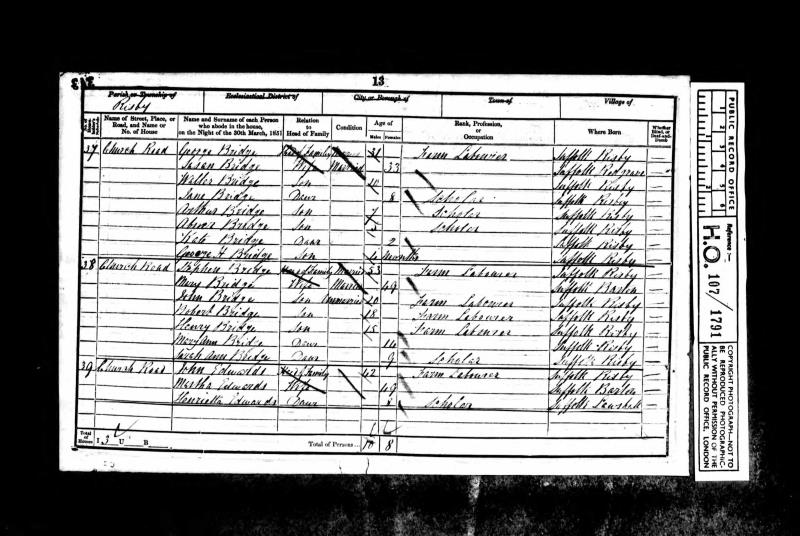 13
Parish or Township of Ecclesiastical District of City or Borough of Town of Village of
Risby
Name of Street, Place, or Road, and Name or No. of House
Name and Surname of each Person who abode in the house, on the Night of the 30th March, 1851
Relation to Head of Family
Condition
Age of
Males Females
Rank, Profession, or Occupation
Where Born
Whether Blind, or Deaf-and-Dumb
37 Church Road George Bridge Head of Family 31 Farm Labourer Suffolk Risby
Susan Bridge Wife Married 33 Suffolk Redgrave
Walter Bridge Son 10 Suffolk Risby
Jane Bridge Daur 8 Scholar Suffolk Risby
Arthur Bridge Son 7 Scholar Suffolk Risby
Bridge Son Scholar Suffolk Risby
Kate Bridge Daur 2 Suffolk Risby
George H Bridge Son 4 months Suffolk Risby
38 Church Road Stephen Bridge Head of Family Married 53 Farm Labourer Suffolk Risby
Mary Bridge Wife Married 49 Suffolk Barton
John Bridge Son Unmarried 20 Farm Labourer Suffolk Risby
Robert Bridge Son 18 Farm Labourer Suffolk Risby
Henry Bridge Son 15 Farm Labourer Suffolk Risby
Mary Ann Bridge Daur 14 Suffolk Risby
Sarah Ann Bridge Daur 9 Scholar Suffolk Risby
39 Church Road John Edwards Head of Family 42 Farm Labourer Suffolk Risby
Martha Edwards Wife 49 Suffolk Barton
Henrietta Edwards Daur 8 Scholar Suffolk
Total of Houses I 3 U B Total of Persons 10 8
PUBLIC RECORD OFFICE
1 2 3 4 5 6
Reference :-
H.O. 107/1791
COPYRIGHT PHOTOGRAPH—NOT TO BE REPRODUCED PHOTOGRAPHICALLY WITHOUT PERMISSION OF THE PUBLIC RECORD OFFICE, LONDON